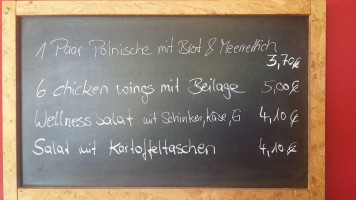 1 Paar Polnische mit Brot & Meerrettich
3,70€
6 chicken wings mit Beilage 5,00€
Wellness salat mit Schinken, Käse, G 4,10€
Salat mit Kartoffeltaschen 4,10€